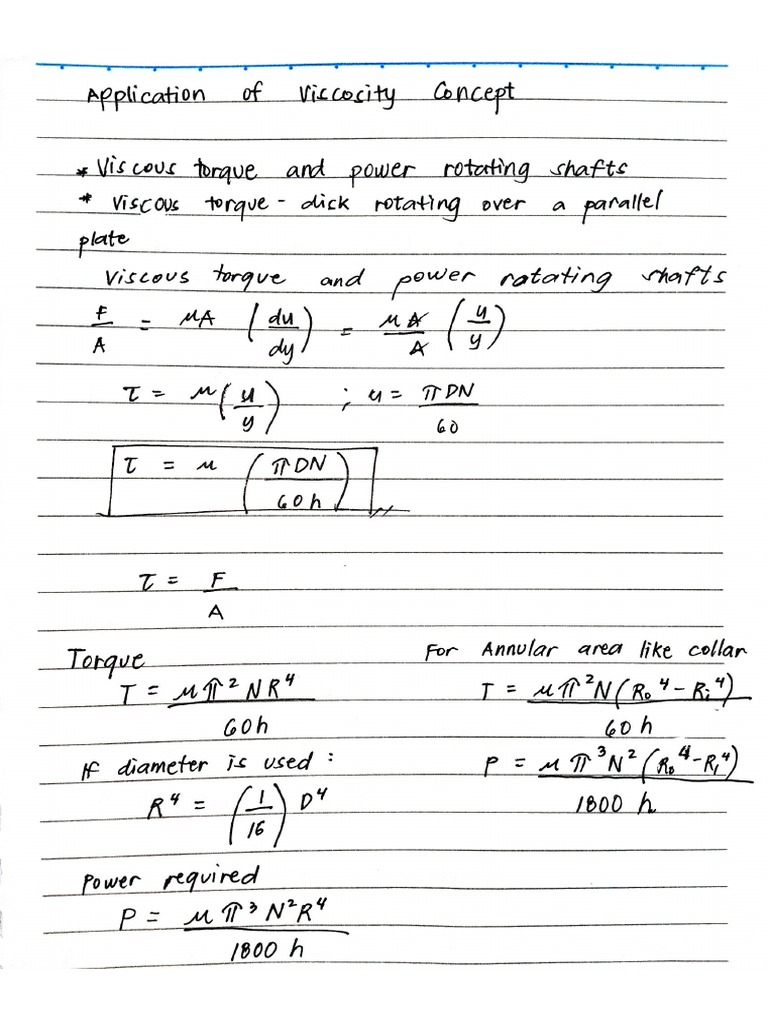 Application of Viscosity Concept
* Viscous torque and power rotating shafts
* Viscous torque - disk rotating over a parallel
plate
Viscous torque and power rotating shafts
F/A = μA (du/dy) = μA/A (u/y)
τ = μ(u/y) ; u = πDN/60
τ = μ (πDN/60h)
τ = F/A
Torque
T = μπ²NR⁴/60h
If diameter is used :
R⁴ = (1/16) D⁴
Power required
P = μπ³N²R⁴/1800 h
For Annular area like collar
T = μπ²N(R₀⁴-Rᵢ⁴)/60h
P = μπ³N²(R₀⁴-Rᵢ⁴)/1800 h